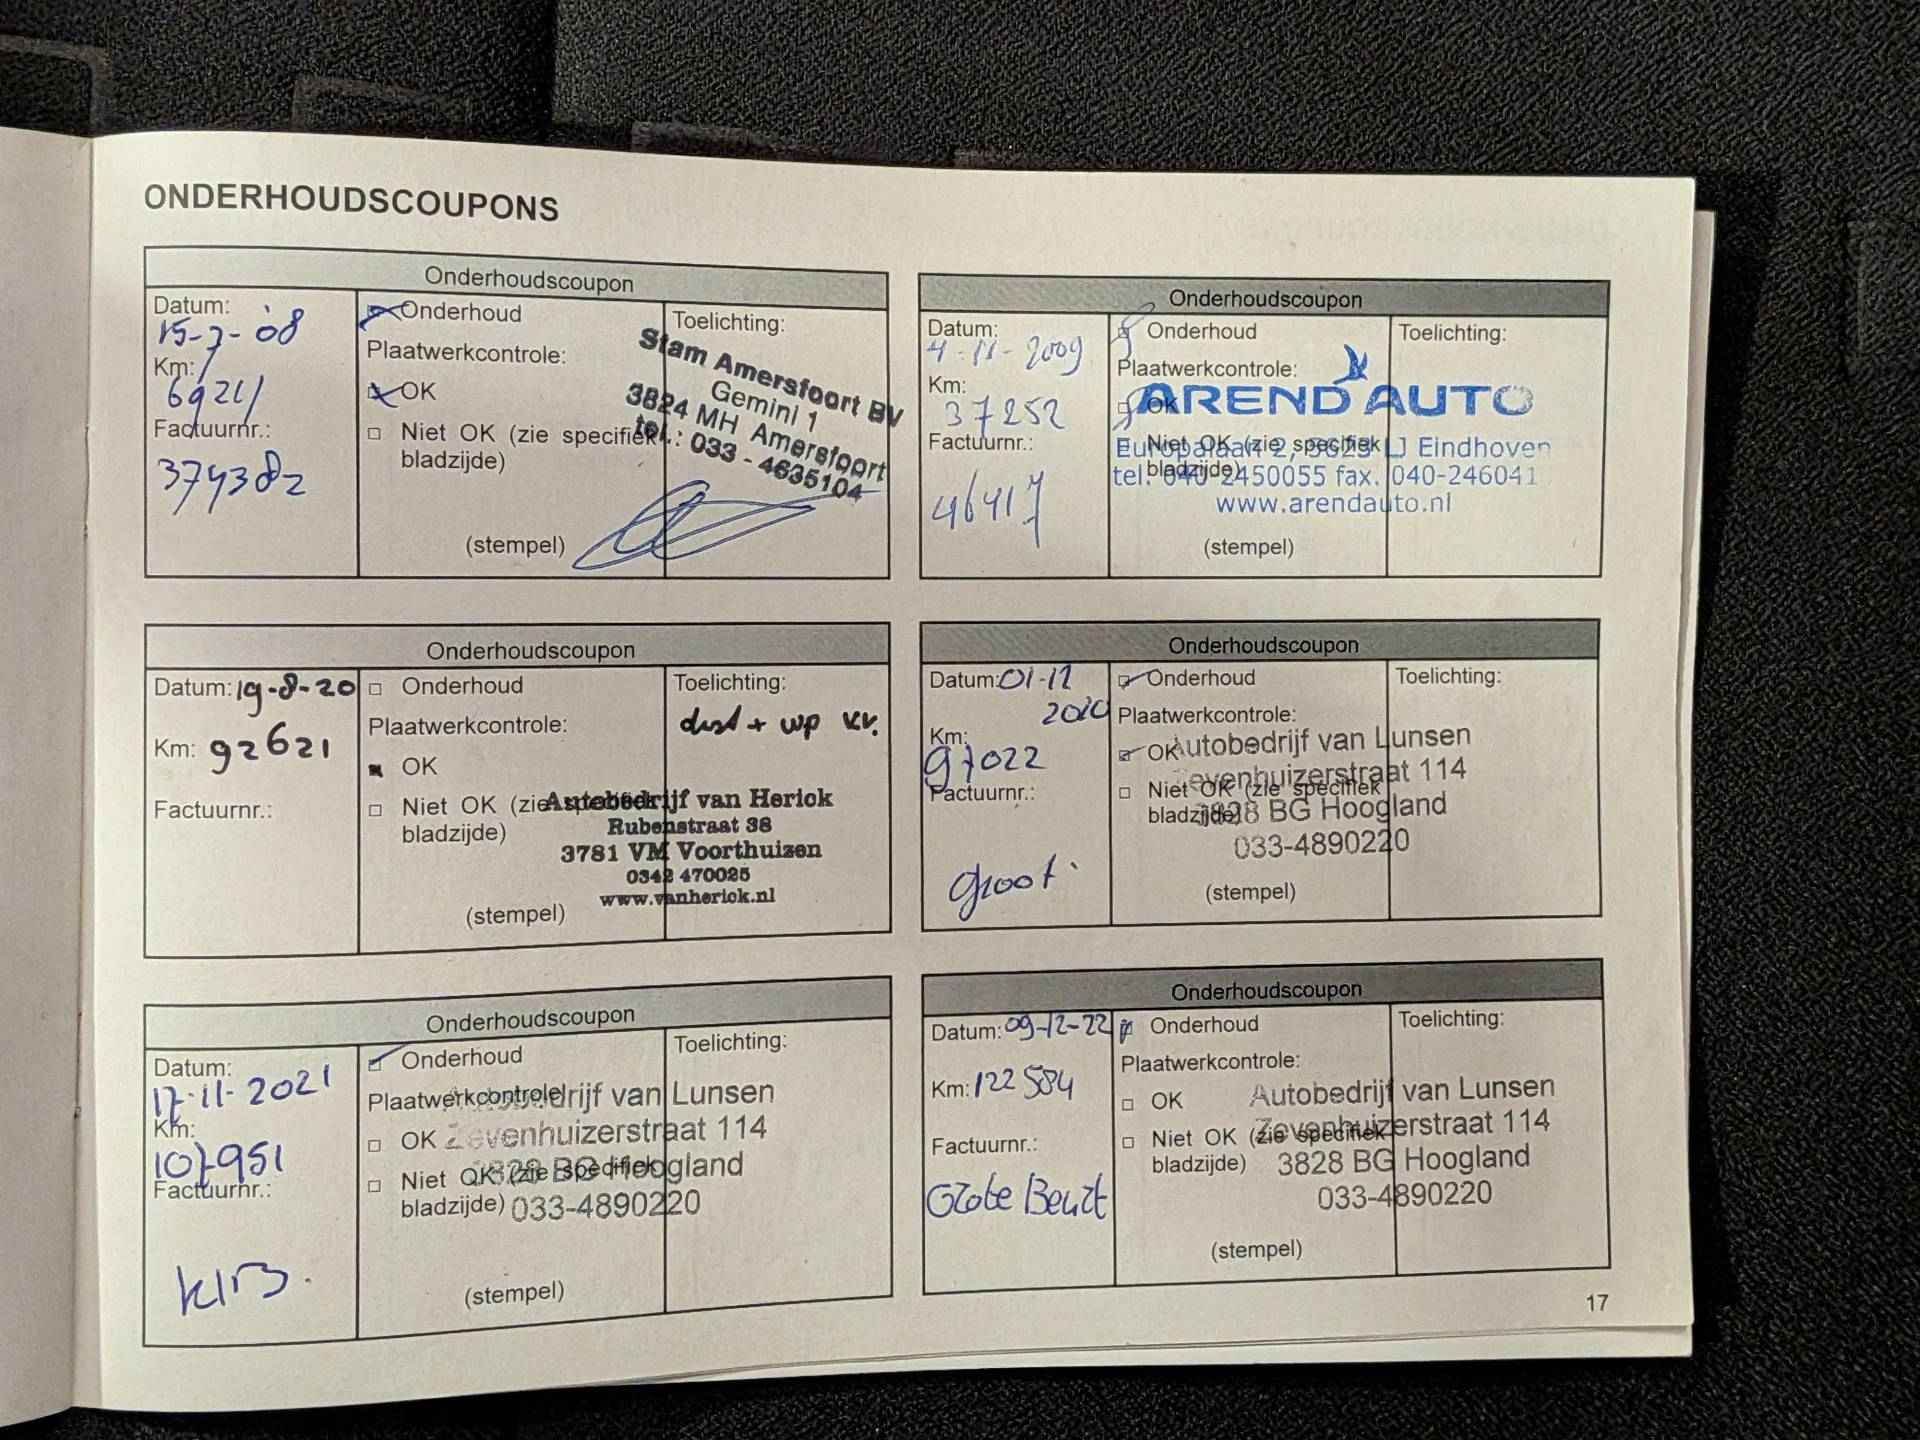 ONDERHOUDSCOUPONS
Onderhoudscoupon
Datum:
15-7-'08
Km:
6921
Factuurnr.:
374382
Onderhoud
Plaatwerkcontrole:
OK
Niet OK (zie specifiek
bladzijde)
(stempel)
Toelichting:
Stam Amersfoort BV
Gemini 1
3824 MH Amersfoort
tel.: 033 - 4635104
Onderhoudscoupon
Datum:
4-11-2009
Km:
37252
Factuurnr.:
46417
Onderhoud
Plaatwerkcontrole:
OK
Niet OK (zie specifiek
bladzijde)
(stempel)
Toelichting:
AREND AUTO
Europalaan 2, 5623 LJ Eindhoven
tel. 040-2450055 fax. 040-246041
www.arendauto.nl
Onderhoudscoupon
Datum: 19-8-20
Km: 92621
Factuurnr.:
Onderhoud
Plaatwerkcontrole:
OK
Niet OK (zie specifiek
bladzijde)
(stempel)
Toelichting:
dist + wp vv.
Autobedrijf van Herick
Rubenstraat 38
3781 VM Voorthuizen
0342 470025
www.vanherick.nl
Onderhoudscoupon
Datum: 01-12
2020
Km:
97022
Factuurnr.:
groot.
Onderhoud
Plaatwerkcontrole:
OK
Niet OK (zie specifiek
bladzijde)
(stempel)
Toelichting:
Autobedrijf van Lunsen
Zevenhuizerstraat 114
3828 BG Hoogland
033-4890220
Onderhoudscoupon
Datum:
17-11-2021
Km:
107951
Factuurnr.:
Onderhoud
Plaatwerkcontrole:
OK
Niet OK (zie specifiek
bladzijde)
(stempel)
Toelichting:
Autobedrijf van Lunsen
Zevenhuizerstraat 114
3828 BG Hoogland
033-4890220
Onderhoudscoupon
Datum: 09-12-22
Km: 122584
Factuurnr.:
Grote Beurt
Onderhoud
Plaatwerkcontrole:
OK
Niet OK (zie specifiek
bladzijde)
(stempel)
Toelichting:
Autobedrijf van Lunsen
Zevenhuizerstraat 114
3828 BG Hoogland
033-4890220
17